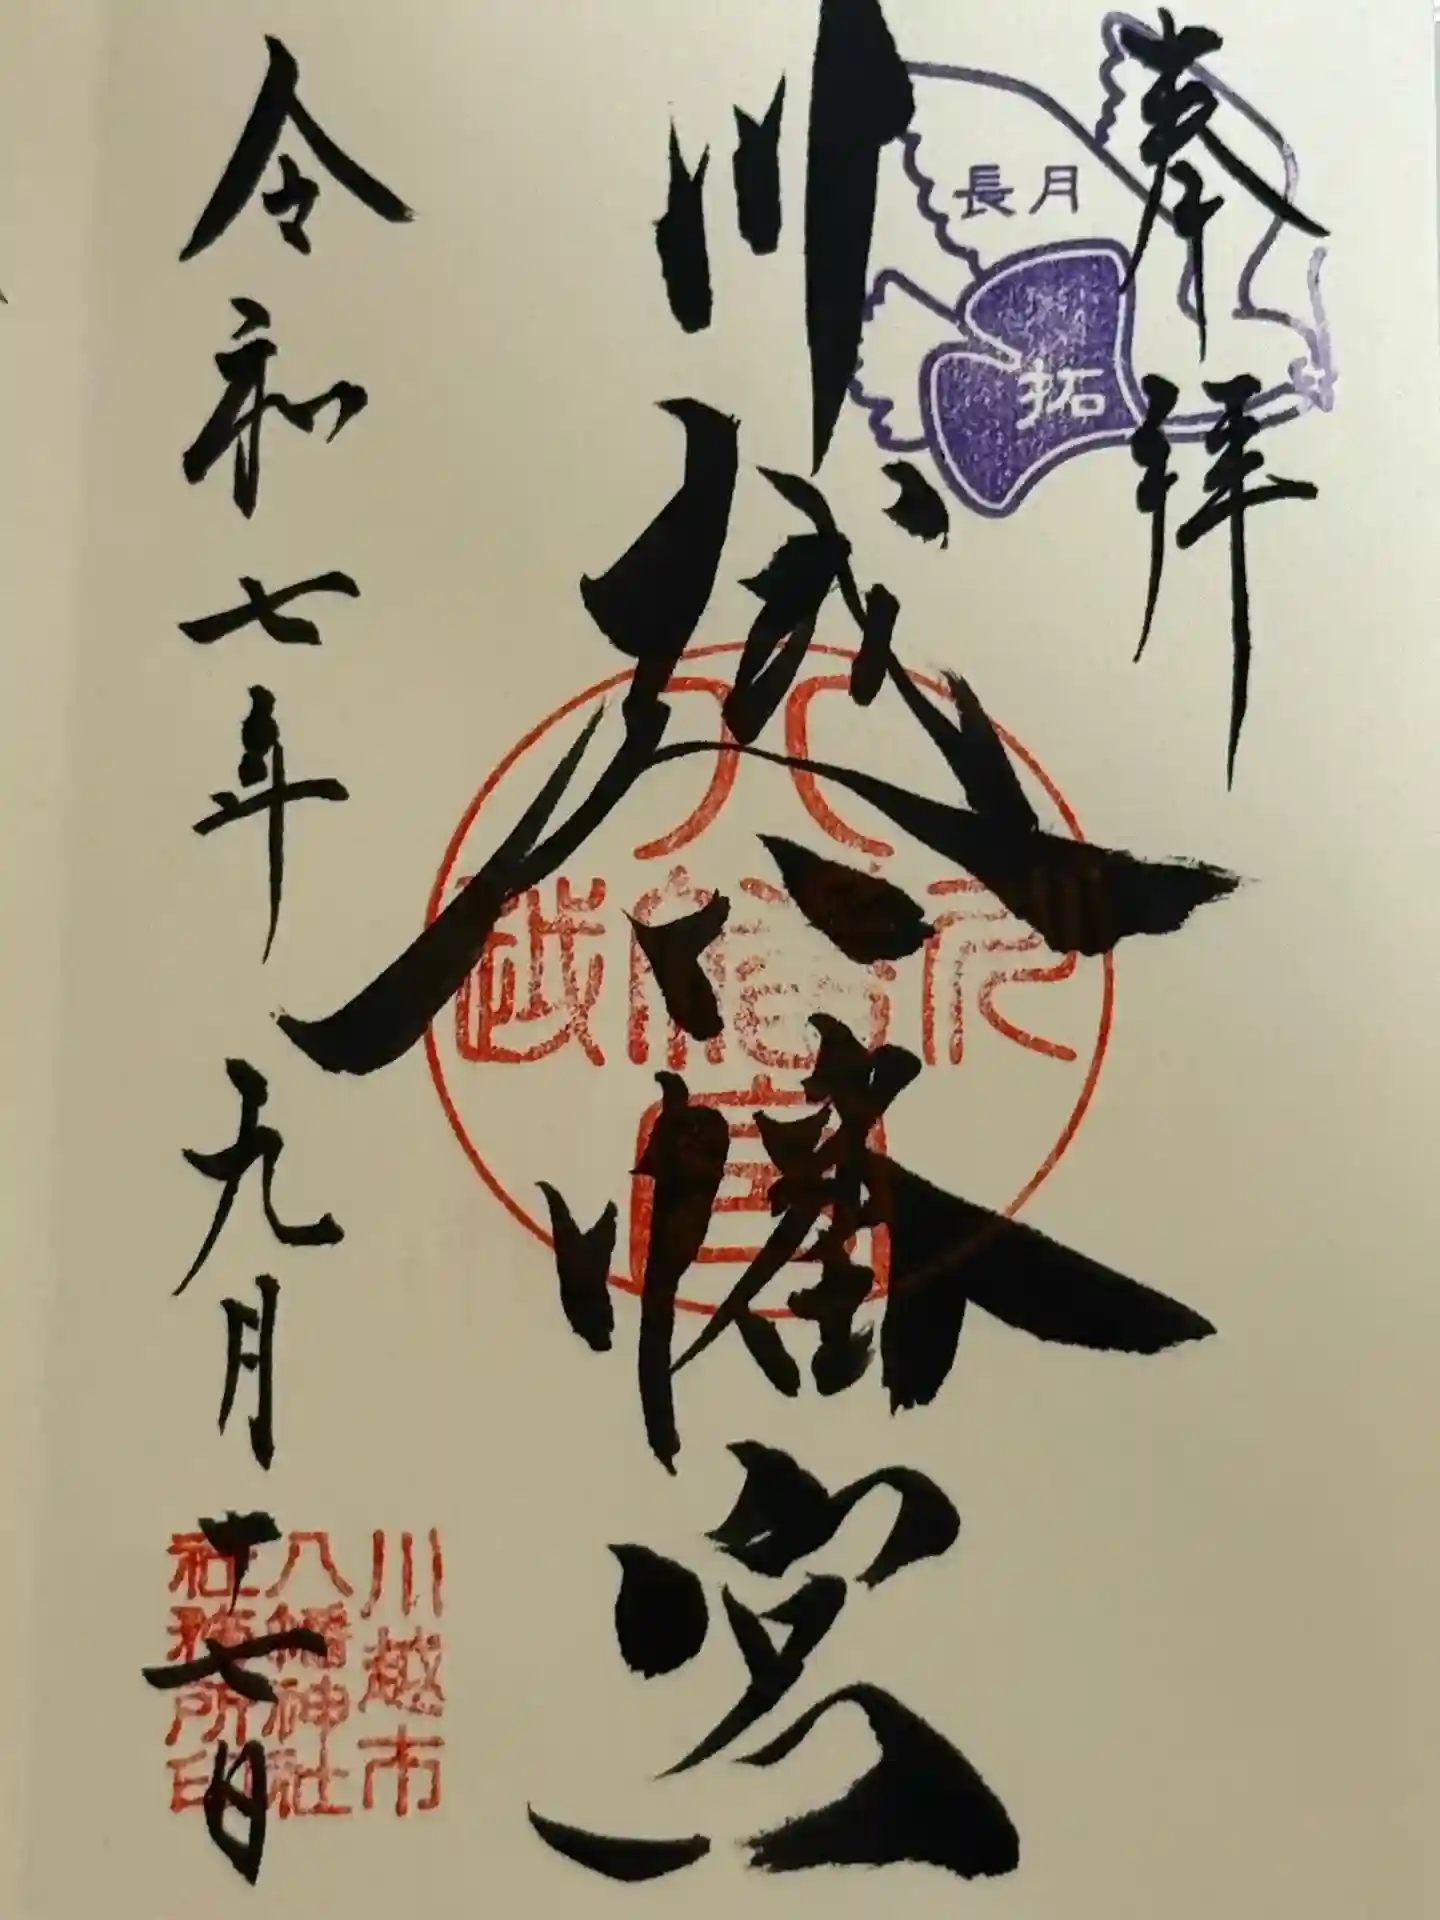 奉拝
長月
拓
川越八幡宮
令和七年九月十七日
川越市
八幡神社
社務所印